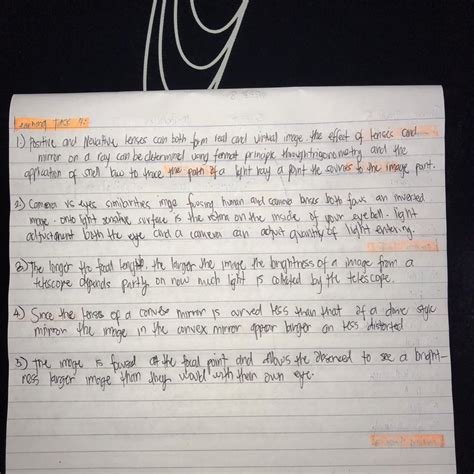 Learning Task 4:
1) Positive and Negative lenses can both form real and virtual image. the effect of lenses and
mirror on a ray can be determined using fermat principle through trigonometry and the
application of snell law to trace the path of a light ray a point the sources to the image
2.) Camera vs eyes similarities image fusing human and camera lenses both focus an inverted
image. one light sensitive surface is the retina on the inside of your eyeball. light
adjustment both the eye and a camera can adjust quantity of light entering.
3.) The longer the focal length, the larger the image the brightness of a image from a
telescope depends partly on how much light is collected by the telescope.
4.) Since the lenses of a convex mirror is curved less than that of a dome style
mirror the image in the convex mirror appear larger an less distorted
5) The image is focused at the focal point and allows the observed to see a bright-
ness larger image than they would with their own eye.